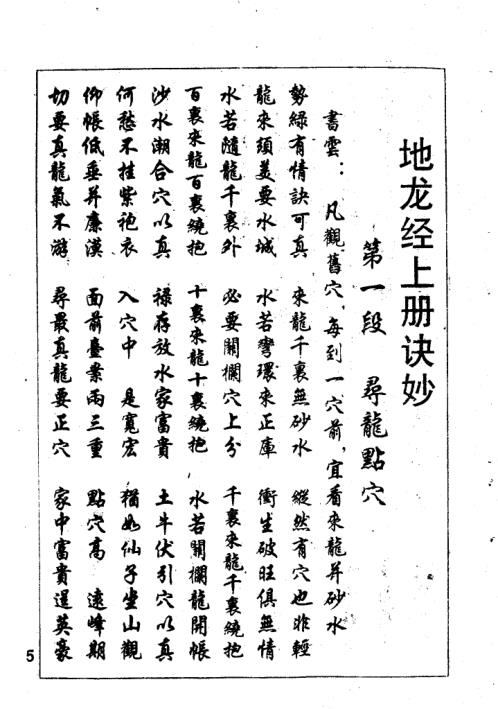 地龙经上册诀妙
第一段 尋龍點穴
書雲：凡觀舊穴，每到一穴前，宜看來龍并砂水
勢綠有情訣可真 來龍千裏無砂水 縱然有穴也非輕
龍來須美要水城 水若彎環來正庫 衝生破旺俱無情
水若隨龍千裏外 必要關欄穴上分 千裏來龍千裏繞抱
百裏來龍百裏繞抱 十裏來龍十裏繞抱 水若關欄龍開帳
沙水潮合穴以真 祿存放水家富貴 土牛伏引穴以真
何愁不挂紫袍衣 入穴中 是寬宏 猶如仙子坐山觀
仰帳低垂并廉漢 面前臺案兩三重 點穴高 遠峰期
切要真龍氣不游 尋最真龍要正穴 家中富貴逞英豪
5